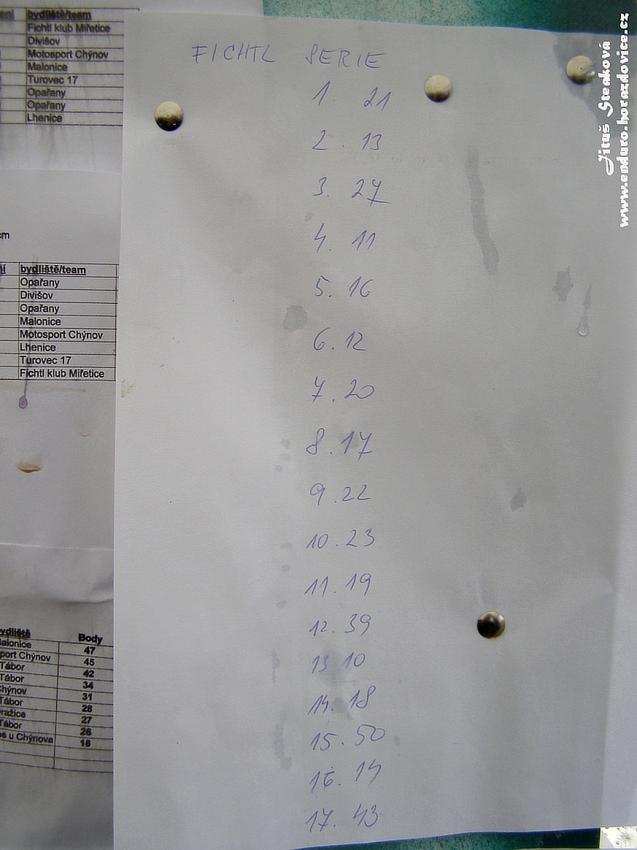 bydliště/team
Fichtl klub Miřetice
Divišov
Motosport Chýnov
Malonice
Turovec 17
Opařany
Opařany
Lhenice
bydliště/team
Opařany
Divišov
Opařany
Malonice
Motosport Chýnov
Lhenice
Turovec 17
Fichtl klub Miřetice
Body
47
45
Tábor 42
Tábor 34
31
Tábor 28
27
Tábor 26
u Chýnova 18
FICHTL SERIE
1. 21
2. 13
3. 27
4. 11
5. 16
6. 12
7. 20
8. 17
9. 22
10. 23
11. 19
12. 39
13 10
14. 18
15. 50
16. 14
17. 43
Jituš Steaková
www.enduro.horazdovice.cz